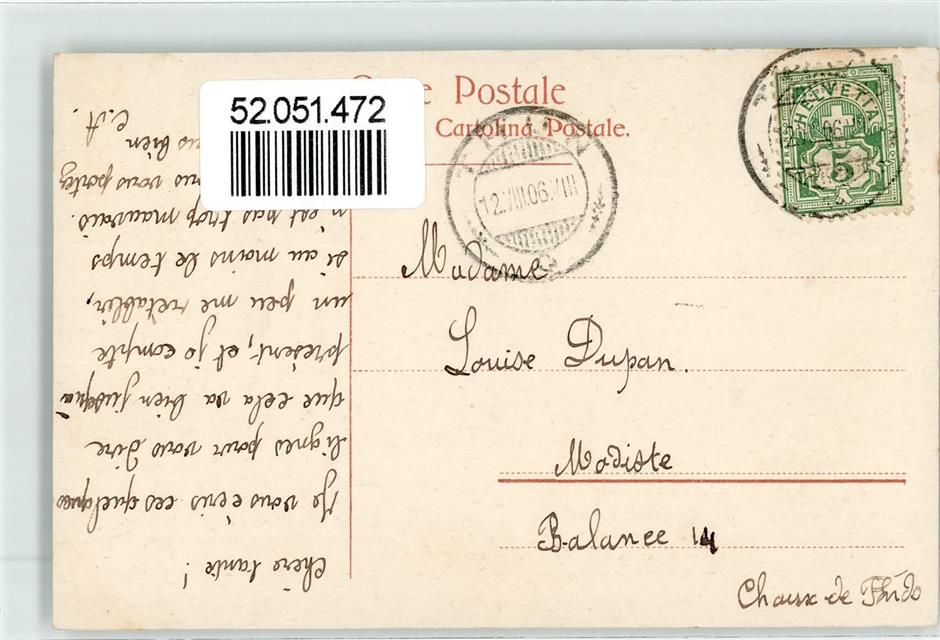 52.051.472
Postale
Cartolina Postale.
HELVETIA
5
12.VIII.06.VIII
Madame
Louise Dupan.
Modiste
Balance 14
Chaux de Fds
Chère tante!
Je vous écris ces quelques
lignes pour vous dire
que cela va bien jusqu'à
présent, et je compte
un peu me rétablir,
si au moins le temps
n'est pas trop mauvais.
vous portez
bien
C. A.